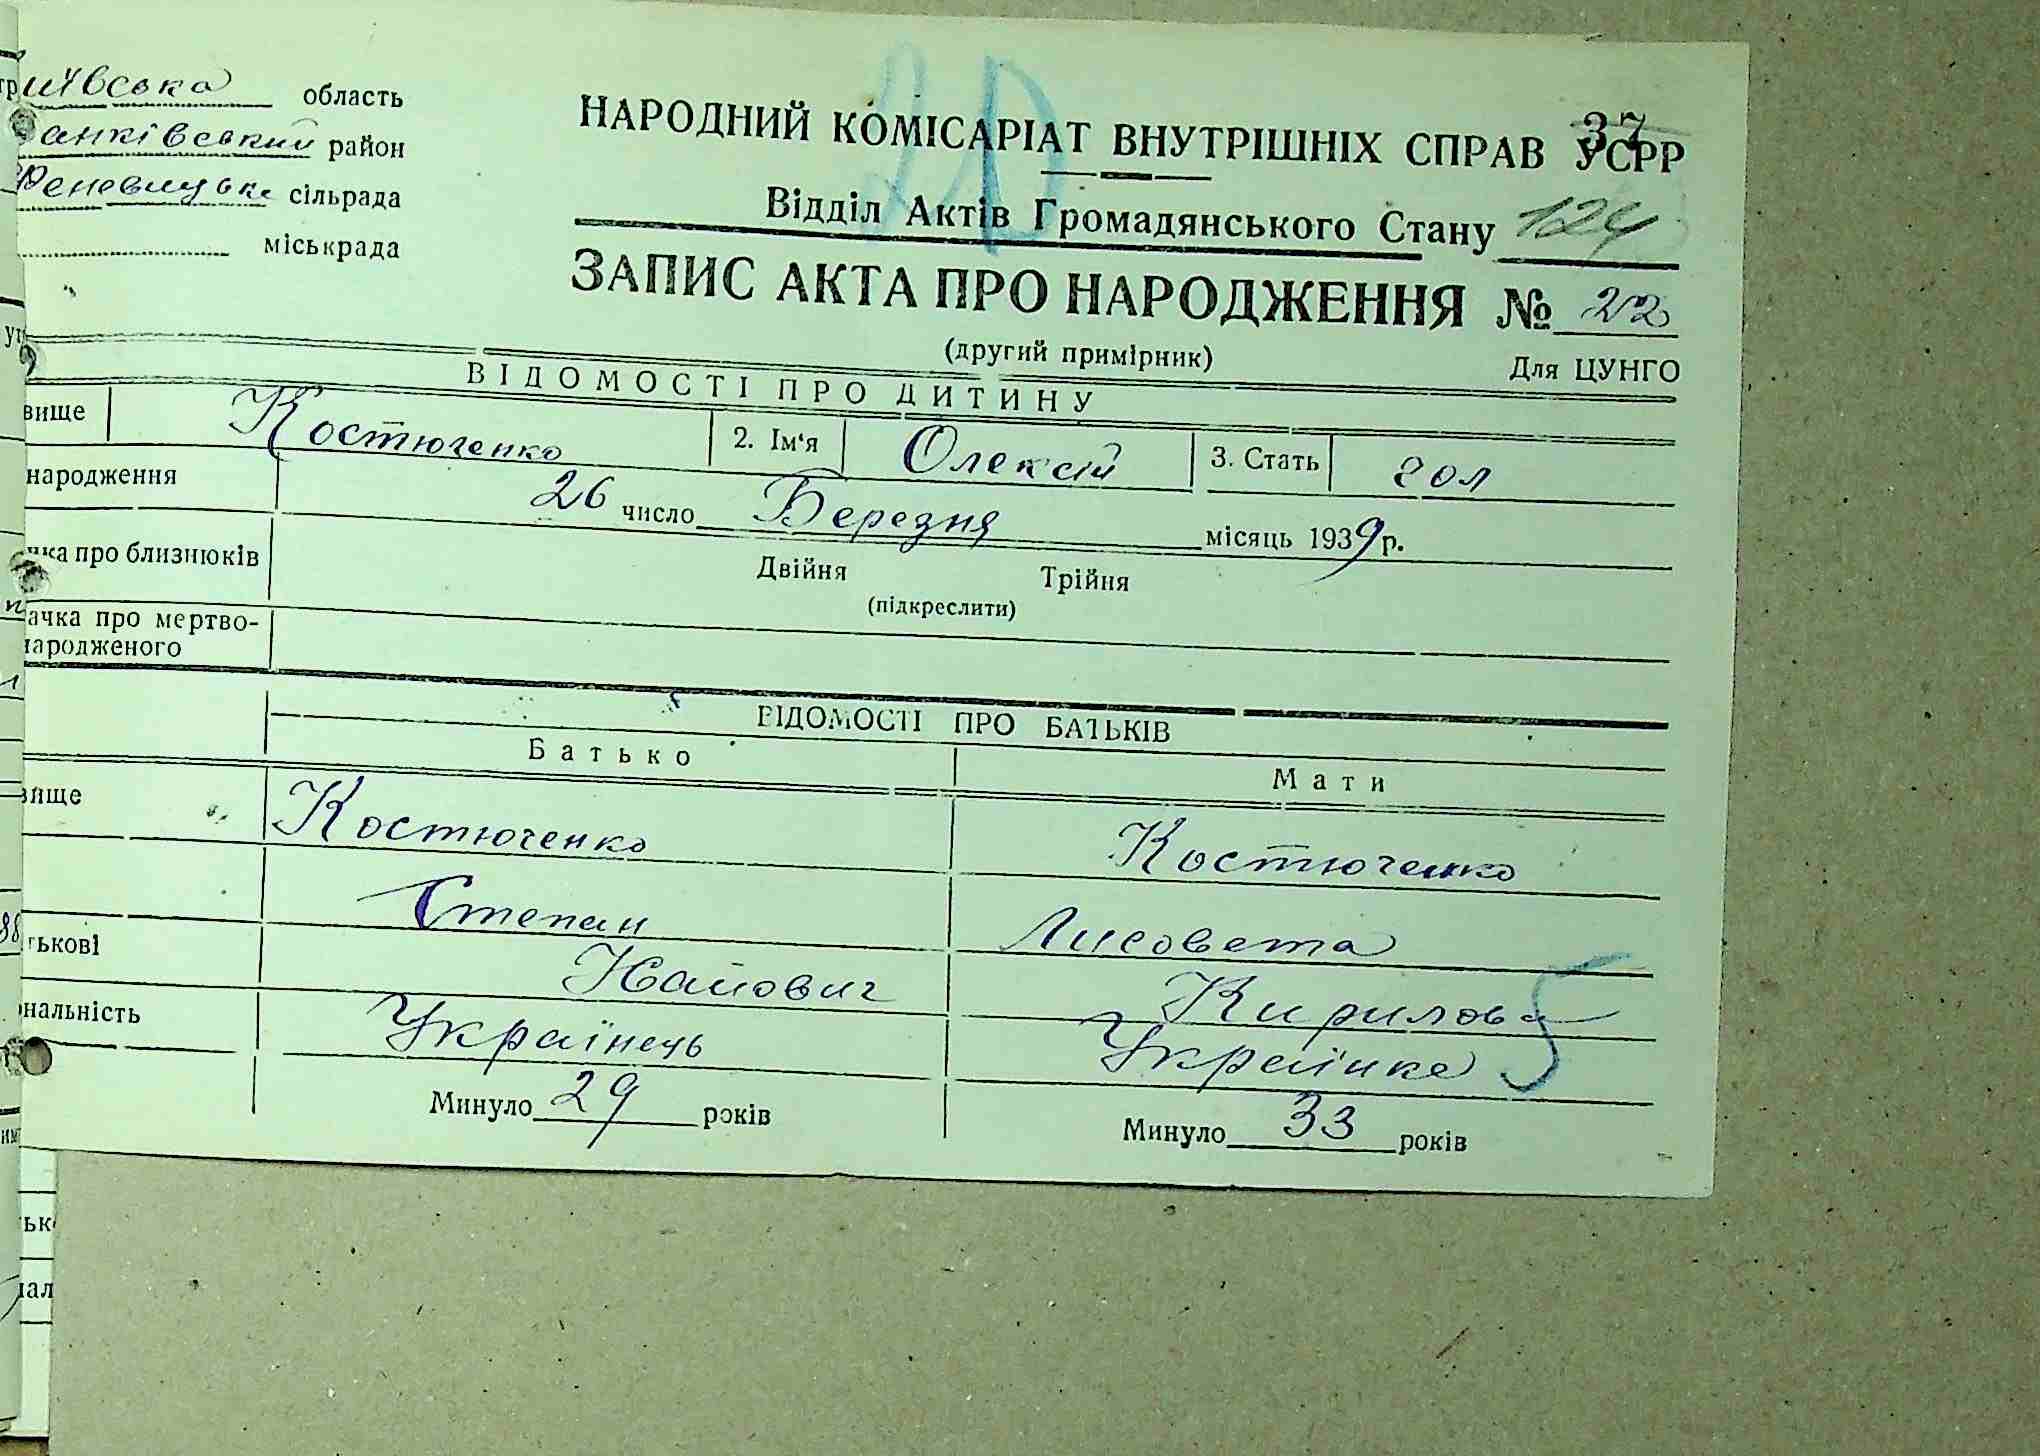 иївська область
анківський район
Феневицьке сільрада
міськрада
НАРОДНИЙ КОМІСАРІАТ ВНУТРІШНІХ СПРАВ УСРР 37
Відділ Актів Громадянського Стану 124
ЗАПИС АКТА ПРО НАРОДЖЕННЯ № 22
(другий примірник) Для ЦУНГО
ВІДОМОСТІ ПРО ДИТИНУ
вище Костюченко 2. Ім'я Олексій 3. Стать чол
народження 26 число Березня місяць 1939 р.
чка про близнюків Двійня Трійня
(підкреслити)
ачка про мертво-
народженого
ВІДОМОСТІ ПРО БАТЬКІВ
Батько Мати
вище Костюченко Костюченко
Степан Лисовета
тькові Кирилова
ональність Українець Українка
Минуло 29 років Минуло 33 років